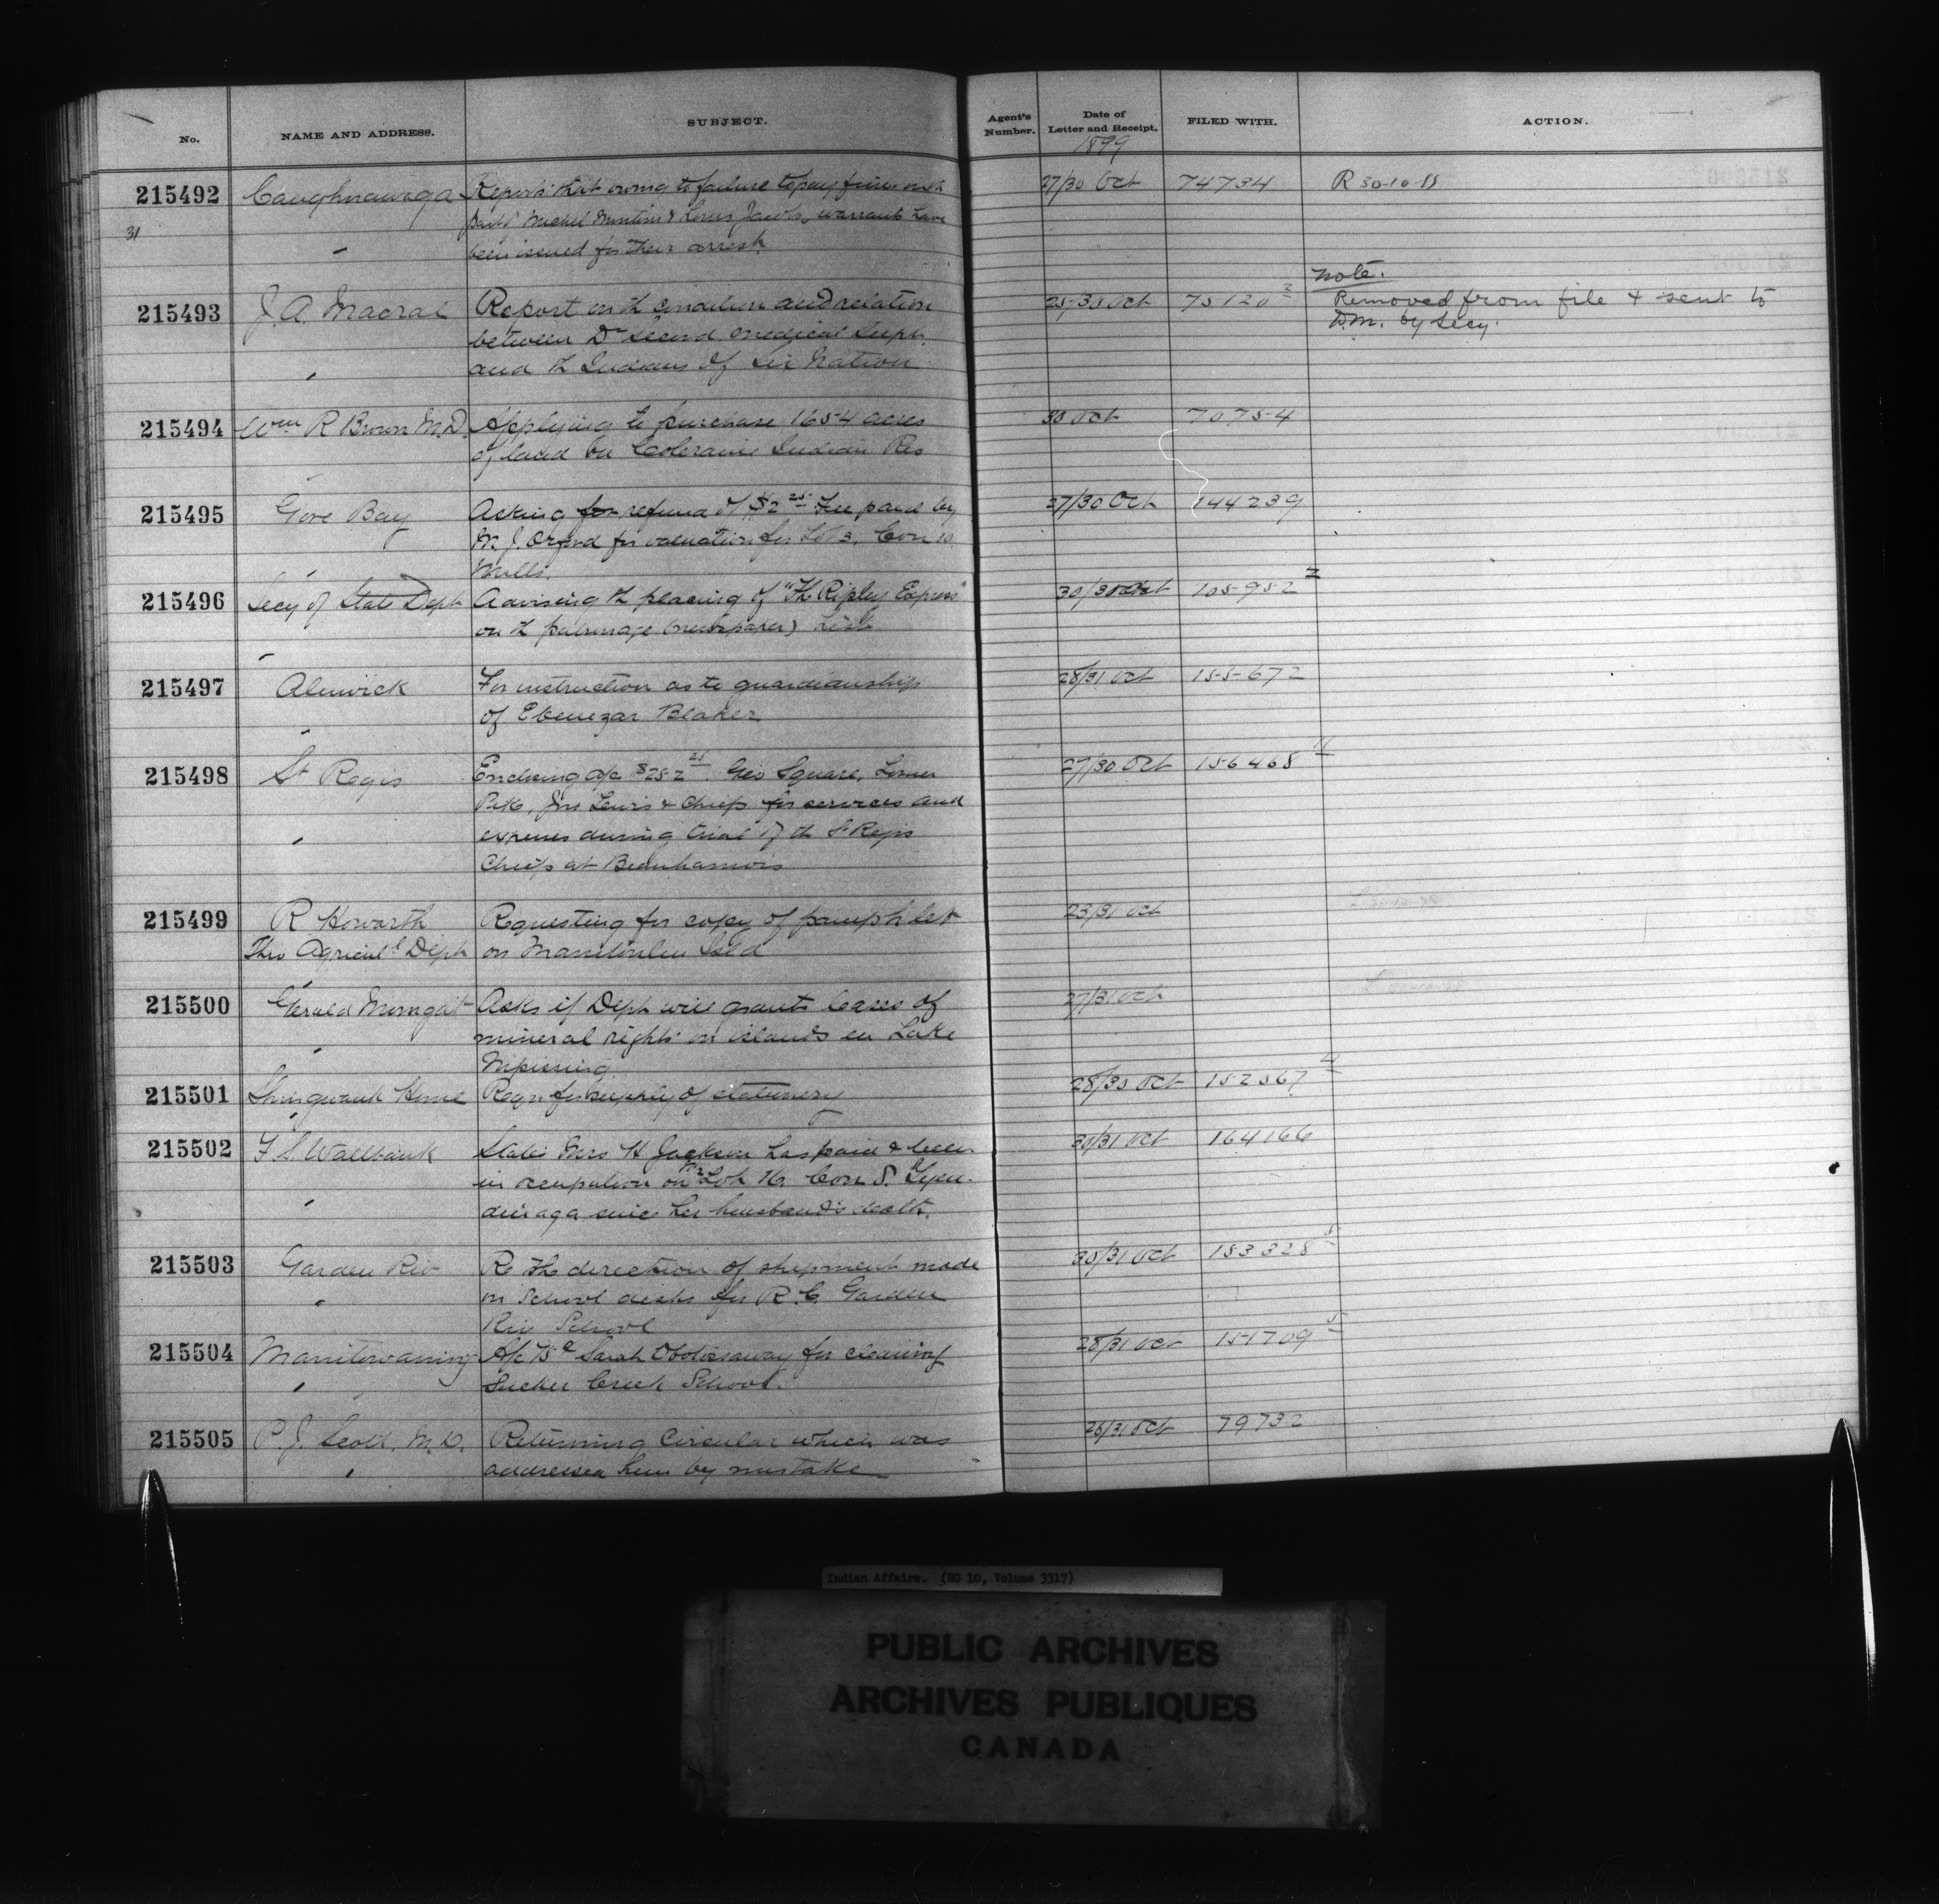 No. NAME AND ADDRESS. SUBJECT. Agent's Number. Date of Letter and Receipt. FILED WITH. ACTION.
1899
215492 Caughnawaga Reports that owing to failure to pay fines on th 27/30 Oct 74734 R 30-10-
31 Michel Montour & Louis Jacobs, warrants have
been issued for their arrest.
Note.
215493 J. A. Macrae Report on th condition and relation 25-30 Oct 75120 2 Removed from file & sent to
between Dr Secord medical Supt. D.M. by Secy.
and th Indians of Six Nation
215494 Wm R Brown M.D. Applying to purchase 1654 acres 30 Oct 70754
of land on Coleraine Indian Res
215495 Gore Bay Asking for refund of $2 25 fee paid by 27/30 Oct 144239
M. J. Orford for valuation for Lot 3, Con 10
Mills.
215496 Secy of State Dept Advising th placing of "The Ripley Express" 30/30 Oct 105952 2
on th patronage (newspaper) List
215497 Alnwick For instruction as to guardianship 28/31 Oct 155672
of Ebenezar Blaker
215498 St Regis Enclosing a/c $252 25. Geo Square, Louis 27/30 Oct 156468
Jno Lewis & Chiefs for services and
expenses during trial of th St Regis
Chiefs at Beauharnois
215499 R Howarth Requesting for copy of pamphlet 23/31 Oct
Thro Agricul'l Dept on Manitoulin Isld
215500 Gerald Asks if Dept will grant leases of 27/31 Oct
mineral rights on islands in Lake
Nipissing
215501 Shingwauk Home Reqn for supply of stationery 28/30 Oct 152567 4
215502 F. S. Wallbank States Mrs H Jackson has paid & been 30/31 Oct 164166
in occupation on Lot 16, Con 5. Tyen-
dinaga since her husband's death.
215503 Garden Riv Re the direction of shipment made 30/31 Oct 153328 5
on School desks for R. C. Garden
Riv School
215504 Manitowaning A/c Sarah for cleaning 28/31 Oct 151709 5
Sucker Creek School.
215505 P. J. Scott, M.D. Returning Circular which was 26/31 Oct 79732
addressed him by mistake
Indian Affairs. (RG 10, Volume 3317)
PUBLIC ARCHIVES
ARCHIVES PUBLIQUES
CANADA